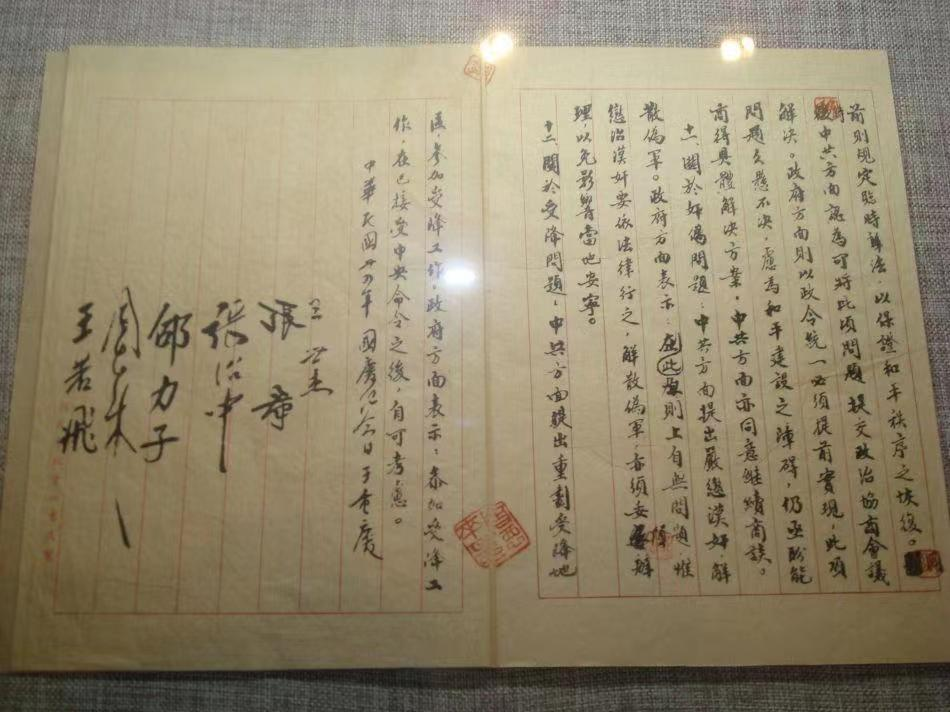 前則規定臨時辦法,以保證和平秩序之恢復。
時中共方面認為可將此項問題提交政治協商會議
解决。政府方面則以政令統一必須提前實現,此項
問題久懸不决,慮為和平建設之障碍,仍亟盼能
商得具體解决方案。中共方面亦同意継續商談。
十一、關於奸偽問題:中共方面提出嚴懲漢奸,解
散偽軍。政府方面表示:此在原則上自無問題,惟
懲治漢奸要依法律行之,解散偽軍,亦須妥慎辦
理,以免影響當地安寧。
十二、關於受降問題:中共方面提出重劃受降地
區,參加受降工作,政府方面表示:參加受降工
作,在已接受中央命令之後,自可考慮。
中華民國卅四年國慶紀念日于重慶
王世杰
張群
張治中
邵力子
周恩來
王若飛